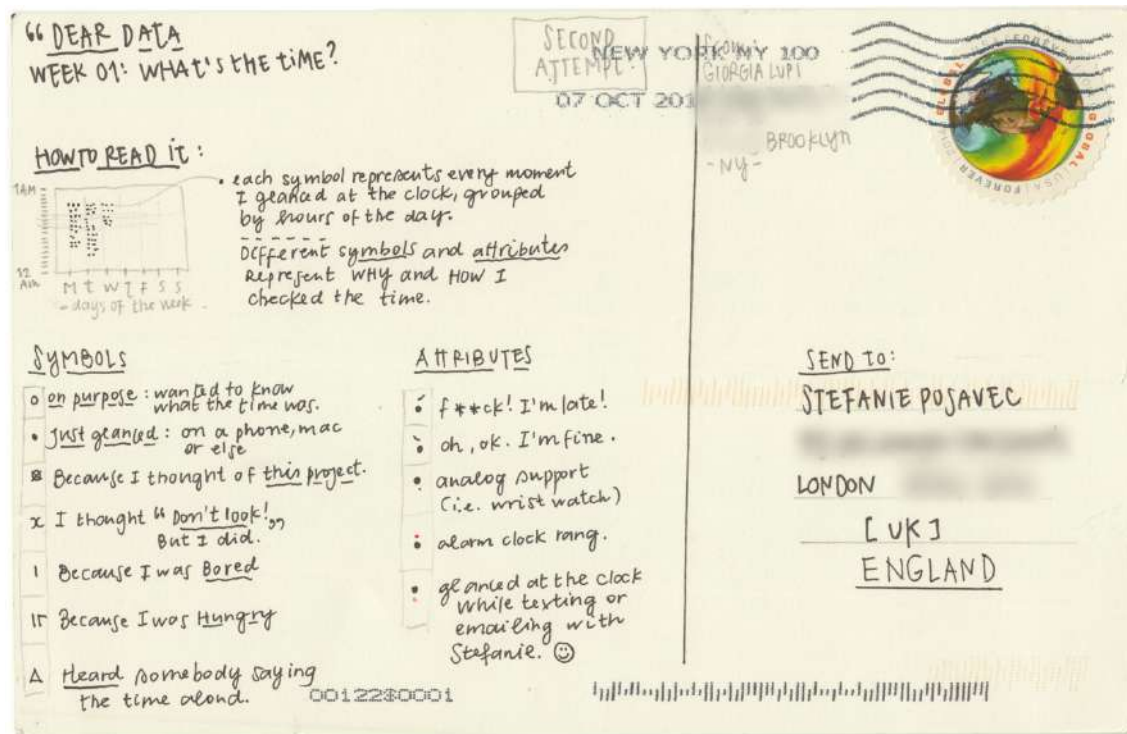 “ DEAR DATA
WEEK 01: WHAT'S THE TIME?
SECOND
ATTEMPT!
NEW YORK NY 100
07 OCT 201
GIORGIA LUPI
BROOKLYN
- NY -
GLOBAL
GLOBAL | USA | FOREVER
HOW TO READ IT:
1AM
12
AM
M T W T F S S
- days of the week -
• each symbol represents every moment
I glanced at the clock, grouped
by hours of the day.
Different symbols and attributes
Represent WHY and HOW I
checked the time.
SYMBOLS
on purpose : wanted to know
what the time was.
Just glanced : on a phone, mac
or else
Because I thought of this project.
x I thought “ Don't look! „
But I did.
Because I was Bored
Because I was Hungry
Heard somebody saying
the time aloud.
ATTRIBUTES
f**ck! I'm late!
oh, ok. I'm fine.
analog support
(i.e. wrist watch)
alarm clock rang.
glanced at the clock
while texting or
emailing with
Stefanie. ☺
SEND TO:
STEFANIE POSAVEC
LONDON
[UK]
ENGLAND